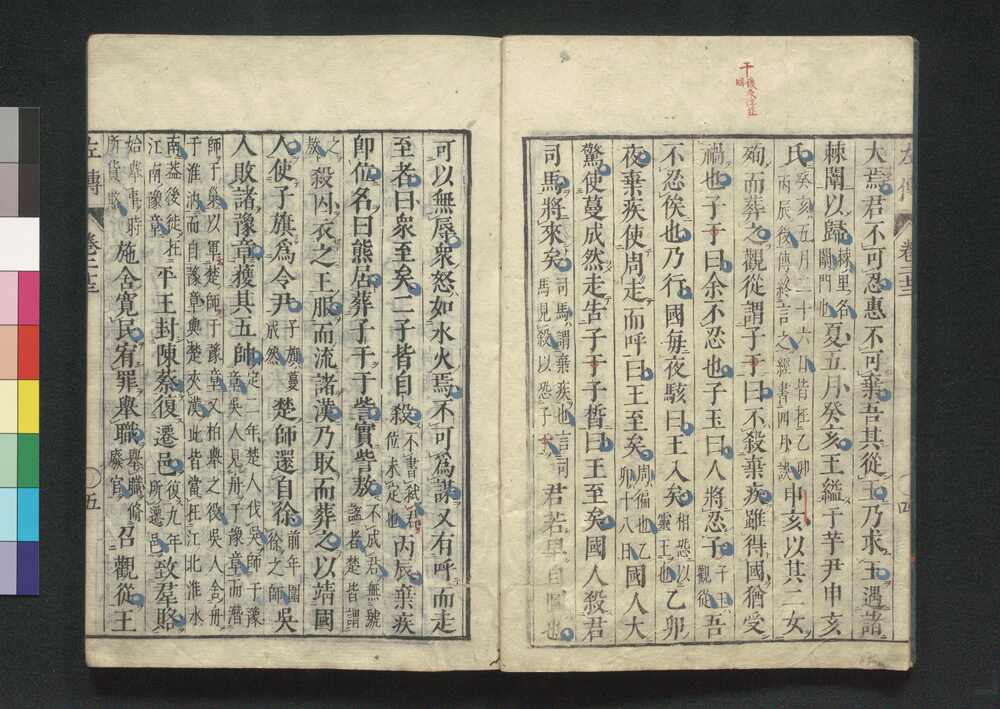 干
大焉君不可忍惠不可棄吾其從王乃求王遇諸
棘闈以歸棘里名闈門也夏五月癸亥王縊于芋尹申亥
氏癸亥五月二十六日皆在乙卯丙辰後傳終言之經書四月誤申亥以其二女
殉而葬之觀從謂子干曰不殺棄疾雖得國猶受
禍也子干曰余不忍也子玉曰人將忍子子玉觀從吾
不忍俟也乃行國每夜駭曰王入矣相恐以靈王也乙卯
夜棄疾使周走而呼曰王至矣周徧也乙卯十八日國人大
驚使蔓成然走告子干子晳曰王至矣國人殺君
司馬將來矣司馬謂棄疾也言司馬見殺以恐子干君若早自圖也
左傳 卷二十三 四
可以無辱衆怒如水火焉不可為謀又有呼而走
至者曰衆至矣二子皆自殺不書弒君位未定也丙辰棄疾
即位名曰熊居葬子干于訾實訾敖不成君無號諡者楚皆謂
之敖殺囚衣之王服而流諸漢乃取而葬之以靖國
人使子旗為令尹子旗蔓成然楚師還自徐前年圍徐之師吳
人敗諸豫章獲其五帥定二年楚人伐吳師于豫章吳人見舟于豫章而潛
師于巢以軍楚師于豫章又柏舉之役吳人舍舟于淮汭而自豫章與楚夾漢此皆當在江北淮水
南蓋後徙在江南豫章平王封陳蔡復遷邑復九年所遷邑致羣賂
始舉事時所貨賂施舍寬民宥罪舉職舉職脩廢官召觀從王
左傳 卷二十三 五